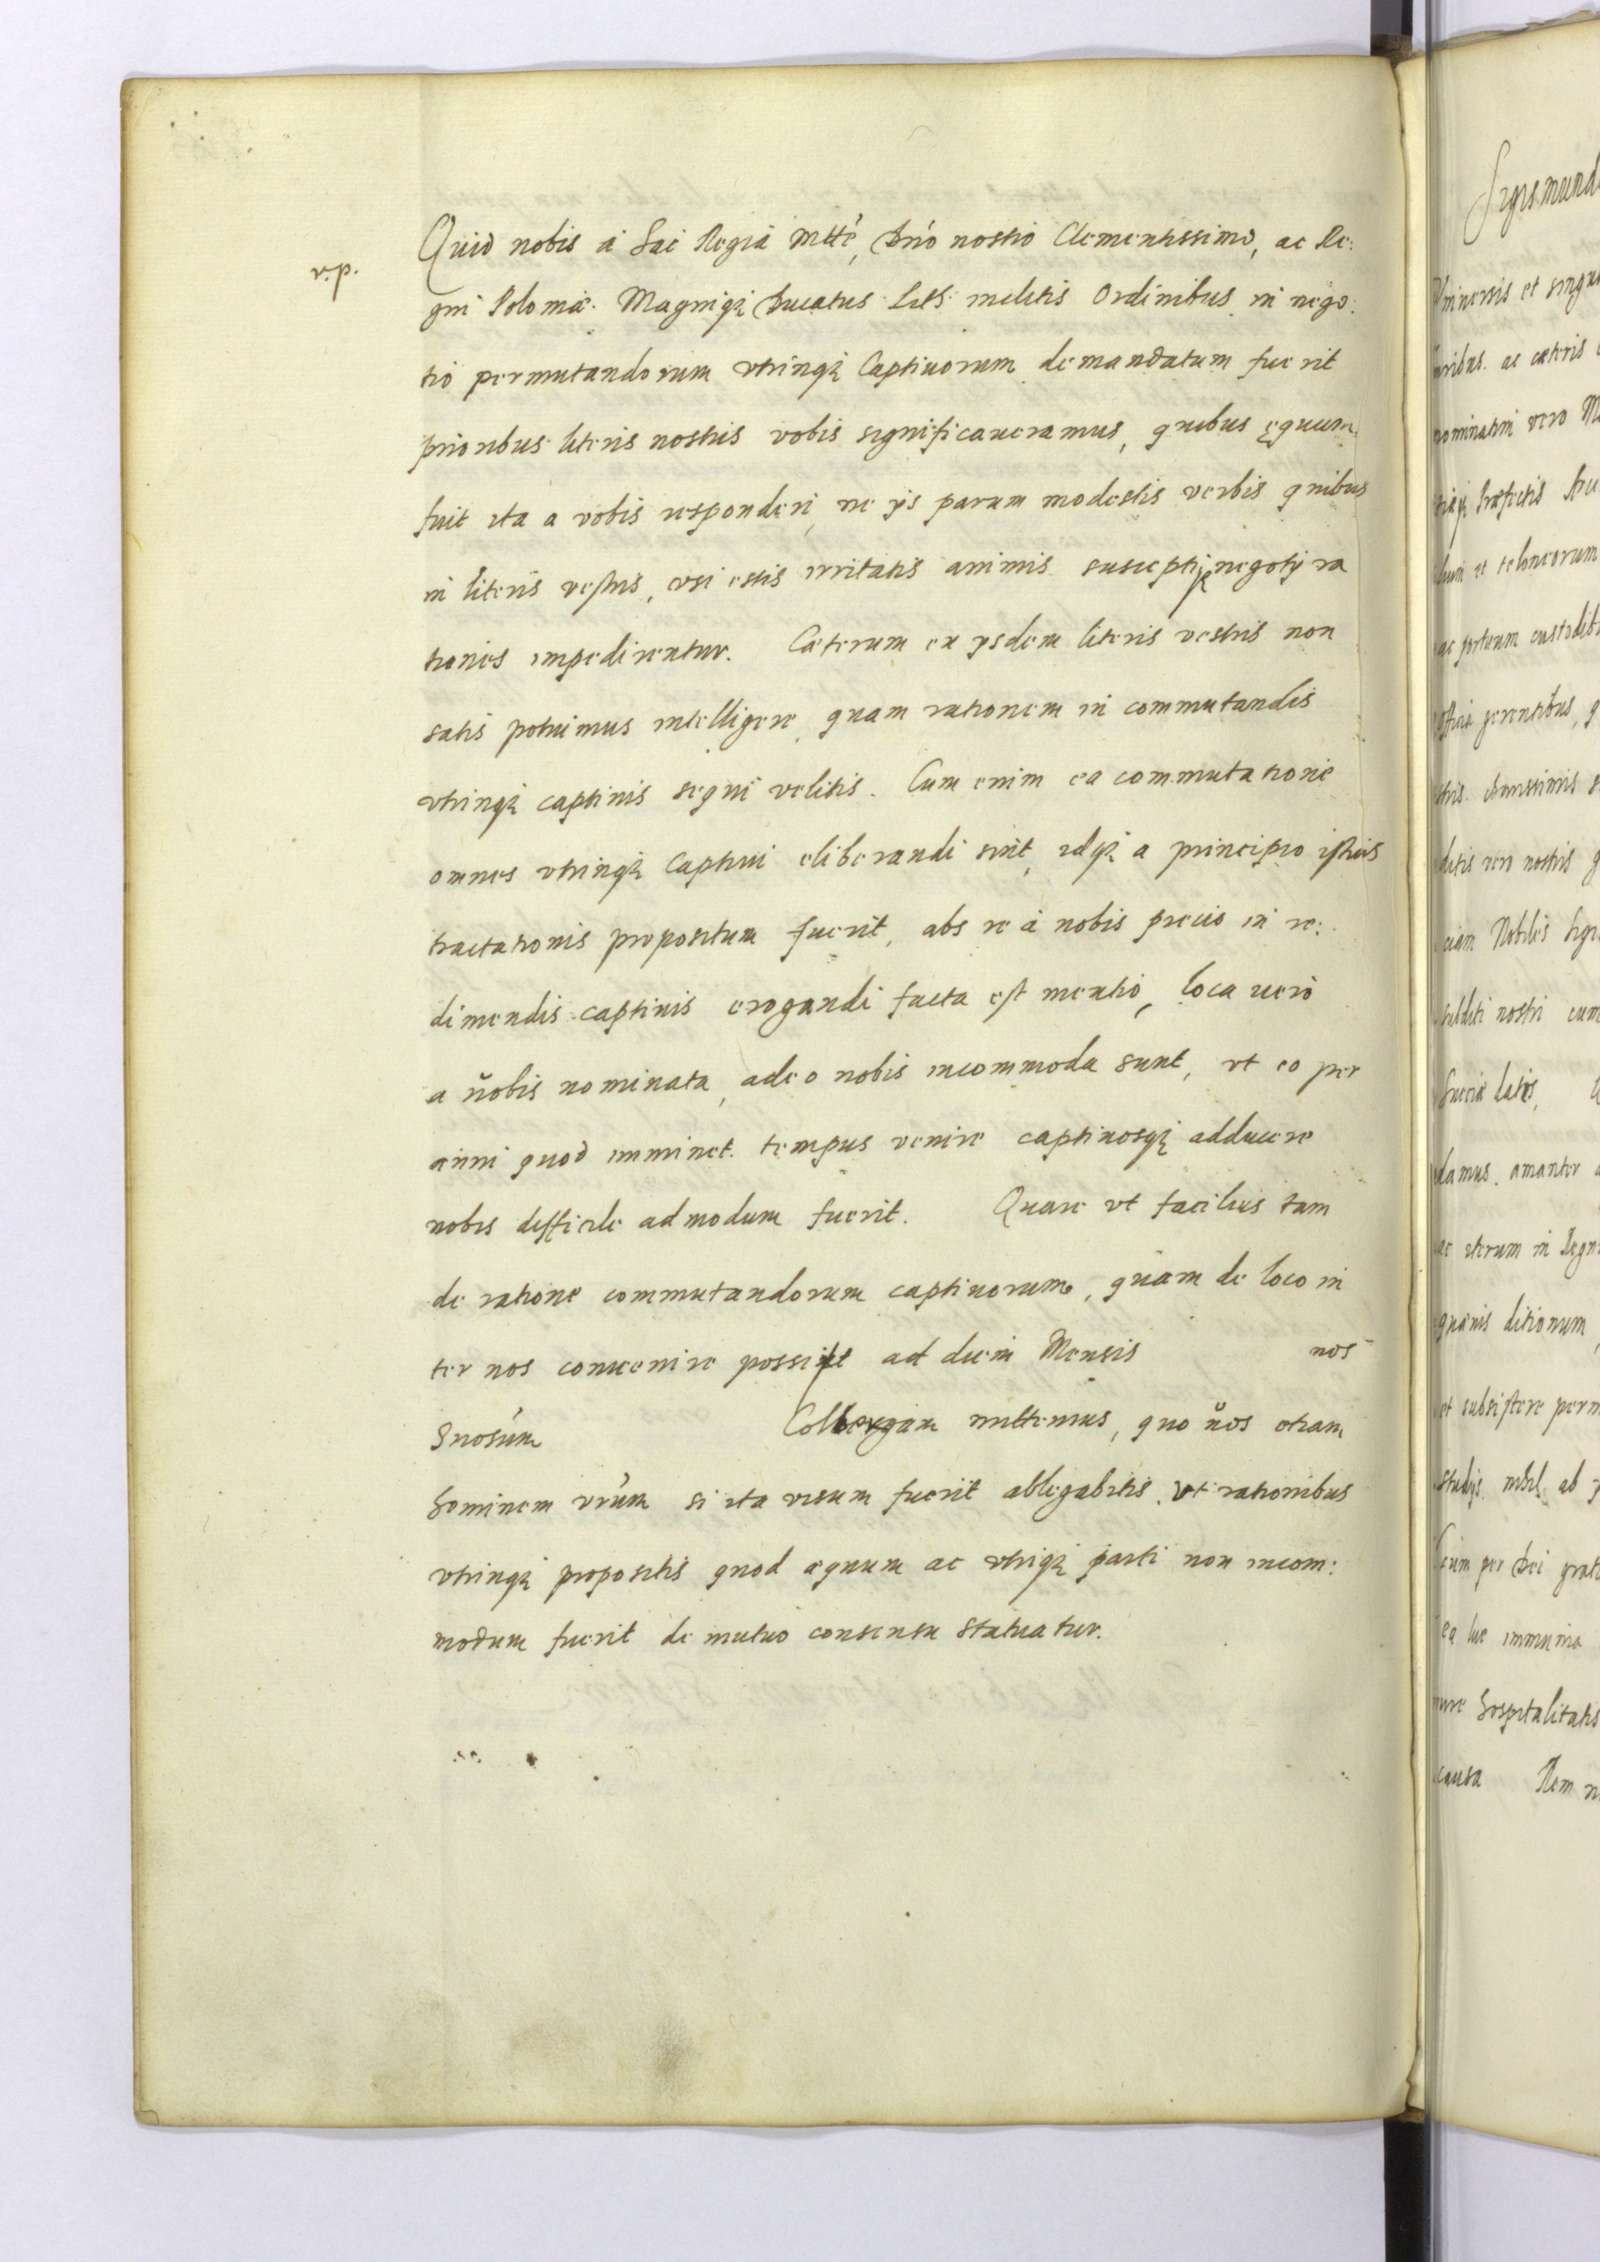 v.p.
Quid nobis á Sac Regiá Mtté, Dn'o nostro Clementissimo, ac Re:
gni Poloniæ. Magniq₃ Ducatus Lith: inclitis Ordinibus in nego:
tio permutandorum vtrinq₃ Captiuorum demandatum fuerit
prioribus literis nostris vobis significaueramus, quibus ęquum
fuit ita a vobis responderi, ne ijs parum modestis verbis quibus
in literis vestris, vsi estis irritatis animis suscepti negotij ra
tiones impedirentur. Cæterum ex ijsdem literis vestris non
satis potuimus intelligere, quam rationem in commutandis
vtrinq₃ captiuis sequi velitis. Cum enim ea commutatione
omnes vtrinq₃ Captiui eliberandi sint, idq₃ a principio istius
tractationis propositum fuerit, abs re á nobis precio in re:
dimendis captiuis erogandi facta est mentio, loca uero
a uobis nominata, adeo nobis incommoda sunt, vt eo per
anni quod imminet tempus venire captiuosq₃ adducere
nobis difficile admodum fuerit. Quare vt facilius tam
de ratione commutandorum captiuorum, quam de loco in
ter nos conuenire possit ad diem Mensis nos
Collbergam mittemus, quo uos etiam
hominem vr'um si ita visum fuerit ablegabitis, vt rationibus
vtrinq₃ propositis quod æquum ac vtriq₃ parti non incom:
modum fuerit de mutuo consensu statuatur.
Sigismund
Vniuersis et singu
ac cæteris
nominatim vero
et teloneorum
ac portuum custodib
gerentibus, q
nostris g
Nobilis
subditi nostri cum
Sueciæ
amanter
ac iterum in Regn
quamis ditionum
et subsistere perm
studijs nihil ab
per Dei grati
immunia
hospitalitatis
causa Rem n